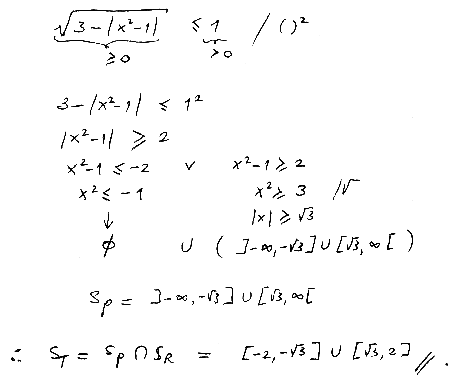 √3-|x²-1| ≤ 1 / ()²
≥0 >0
3-|x²-1| ≤ 1²
|x²-1| ≥ 2
x²-1 ≤ -2 v x²-1 ≥ 2
x² ≤ -1 x² ≥ 3 /√
↓ |x| ≥ √3
∅ ∪ ( ]-∞,-√3] ∪ [√3, ∞[ )
Sp = ]-∞,-√3] ∪ [√3, ∞[
∴ S_T = Sp ∩ S_R = [-2,-√3] ∪ [√3, 2] //.